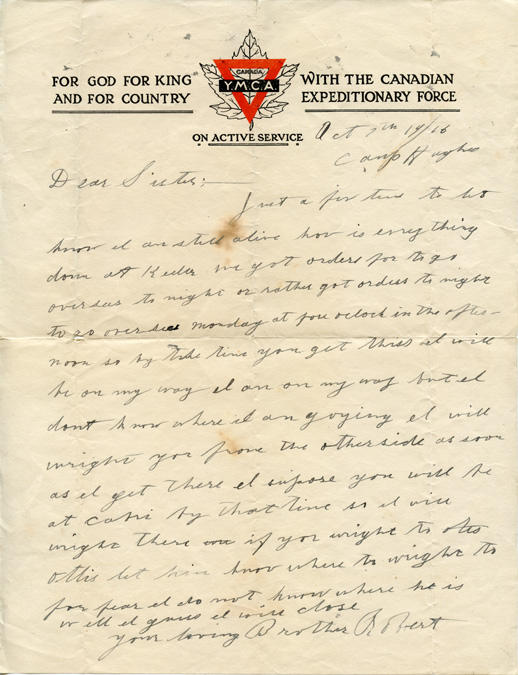 FOR GOD FOR KING
AND FOR COUNTRY
CANADA
Y.M.C.A.
WITH THE CANADIAN
EXPEDITIONARY FORCE
ON ACTIVE SERVICE
Oct 7th 19/16
Camp Hughes
Dear Sister;
Just a few lines to let
know I am still alive how is everything
down at Keeler we got orders for to go
overseas to night or rather got orders to night
to go overseas monday at four oclock in the after-
noon so by the time you get this I will
be on my way I am on my way but I
dont know where I am goying I will
wright you from the otherside as soon
as I get there I supose you will be
at Cabri by that time so I will
wright there if you wright to
ottis let him know where to wright to
for fear I do not know where he is
well I guess I will close
your loving Brother Robert